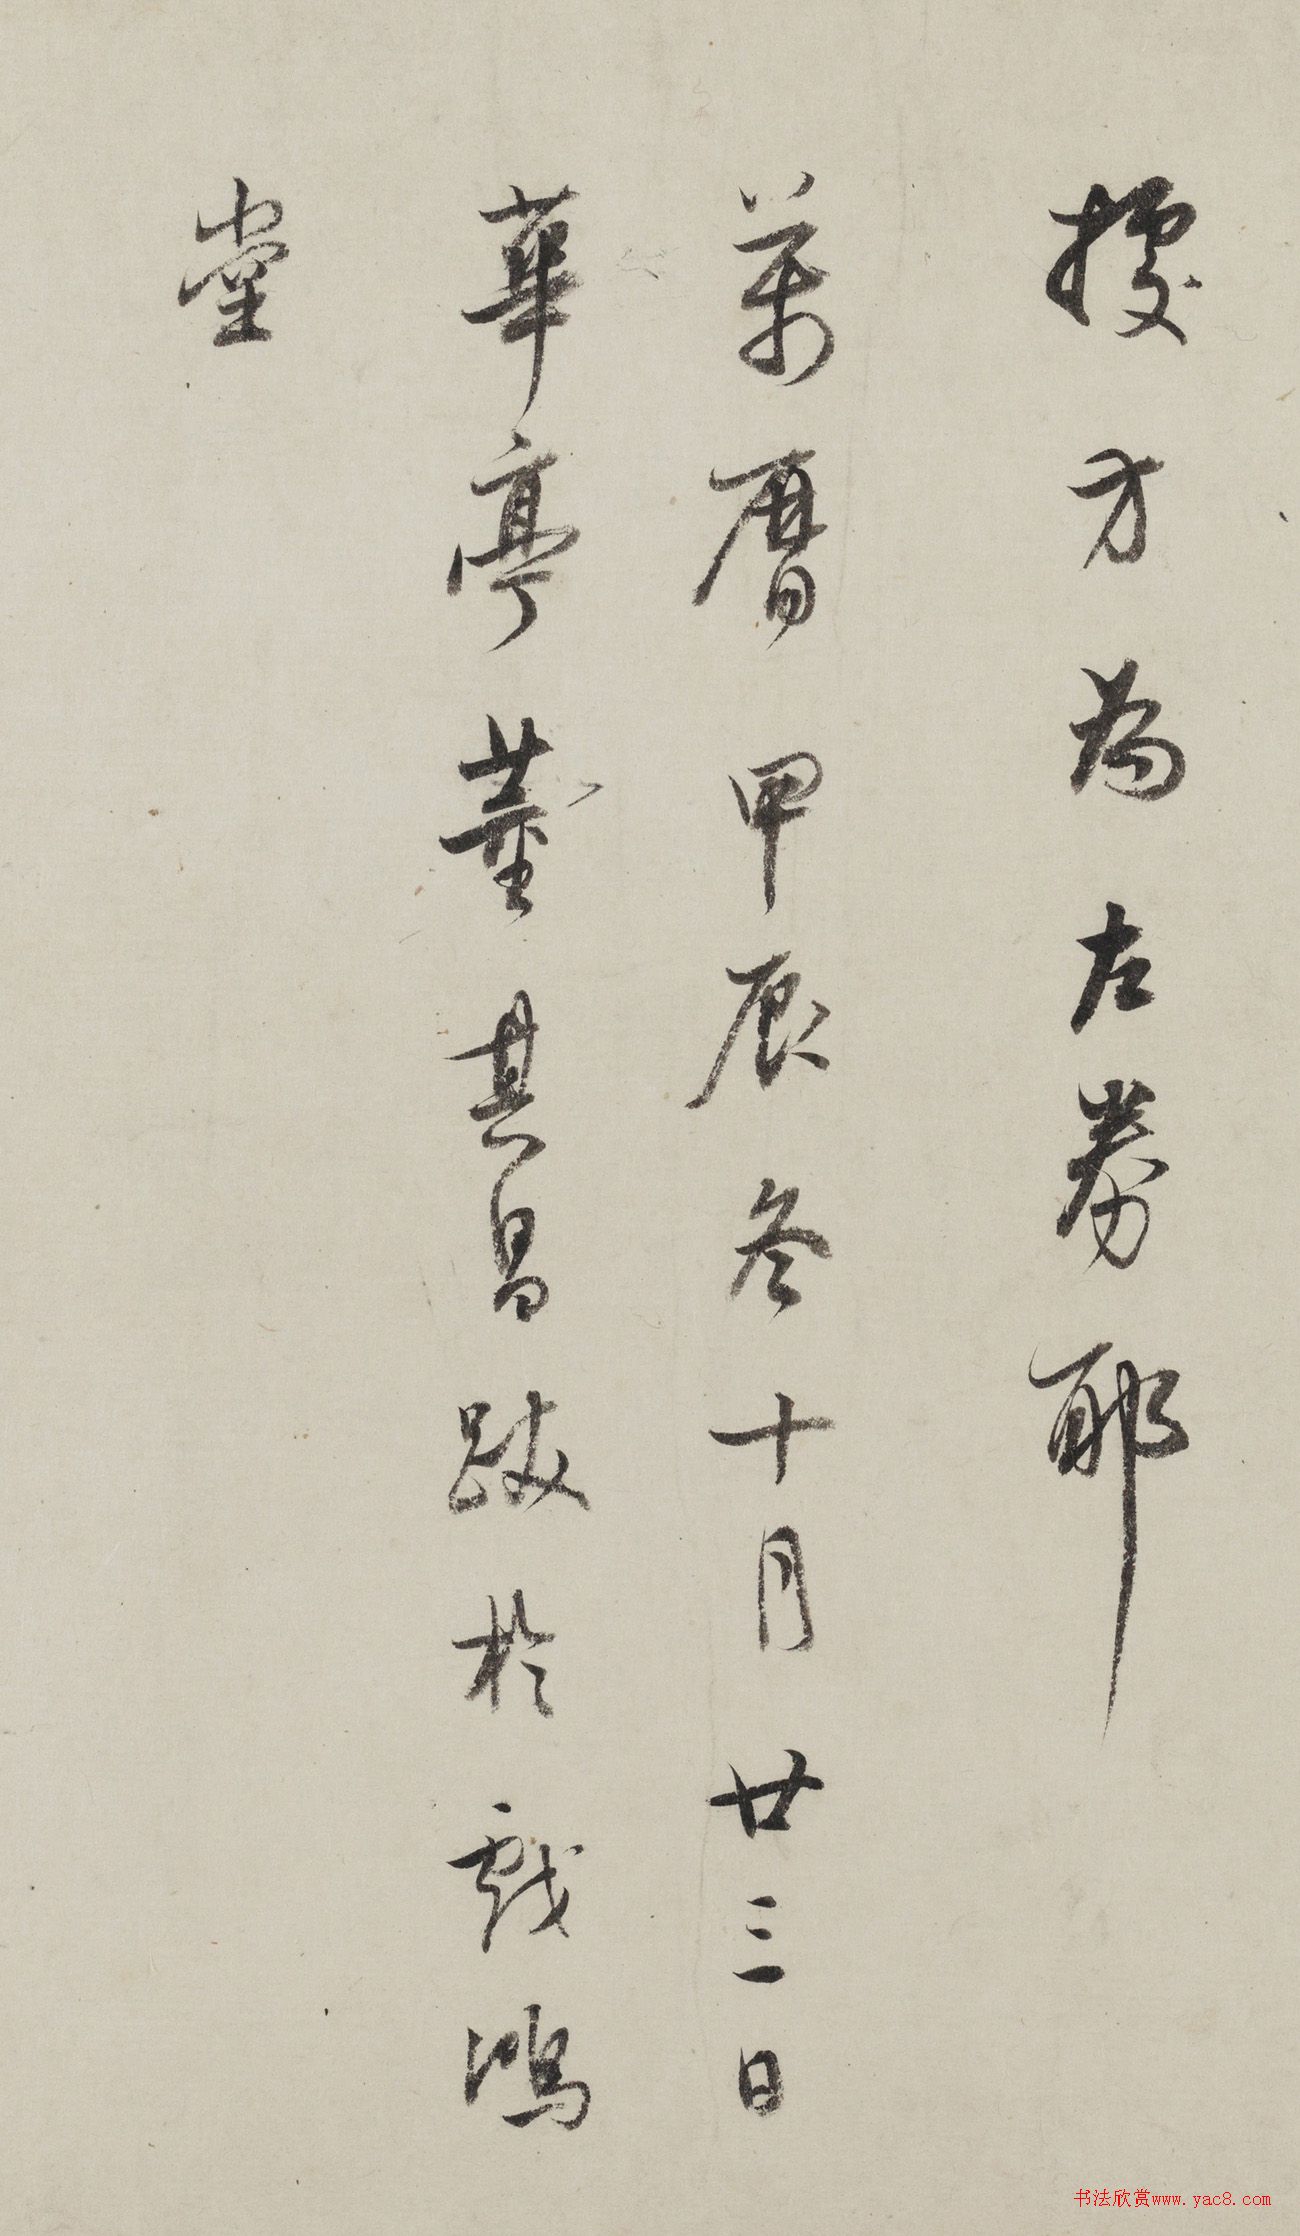 據方為左券耶
萬曆甲辰冬十月廿三日
華亭董其昌跋於戲鴻
堂
书法欣赏www.yac8.com